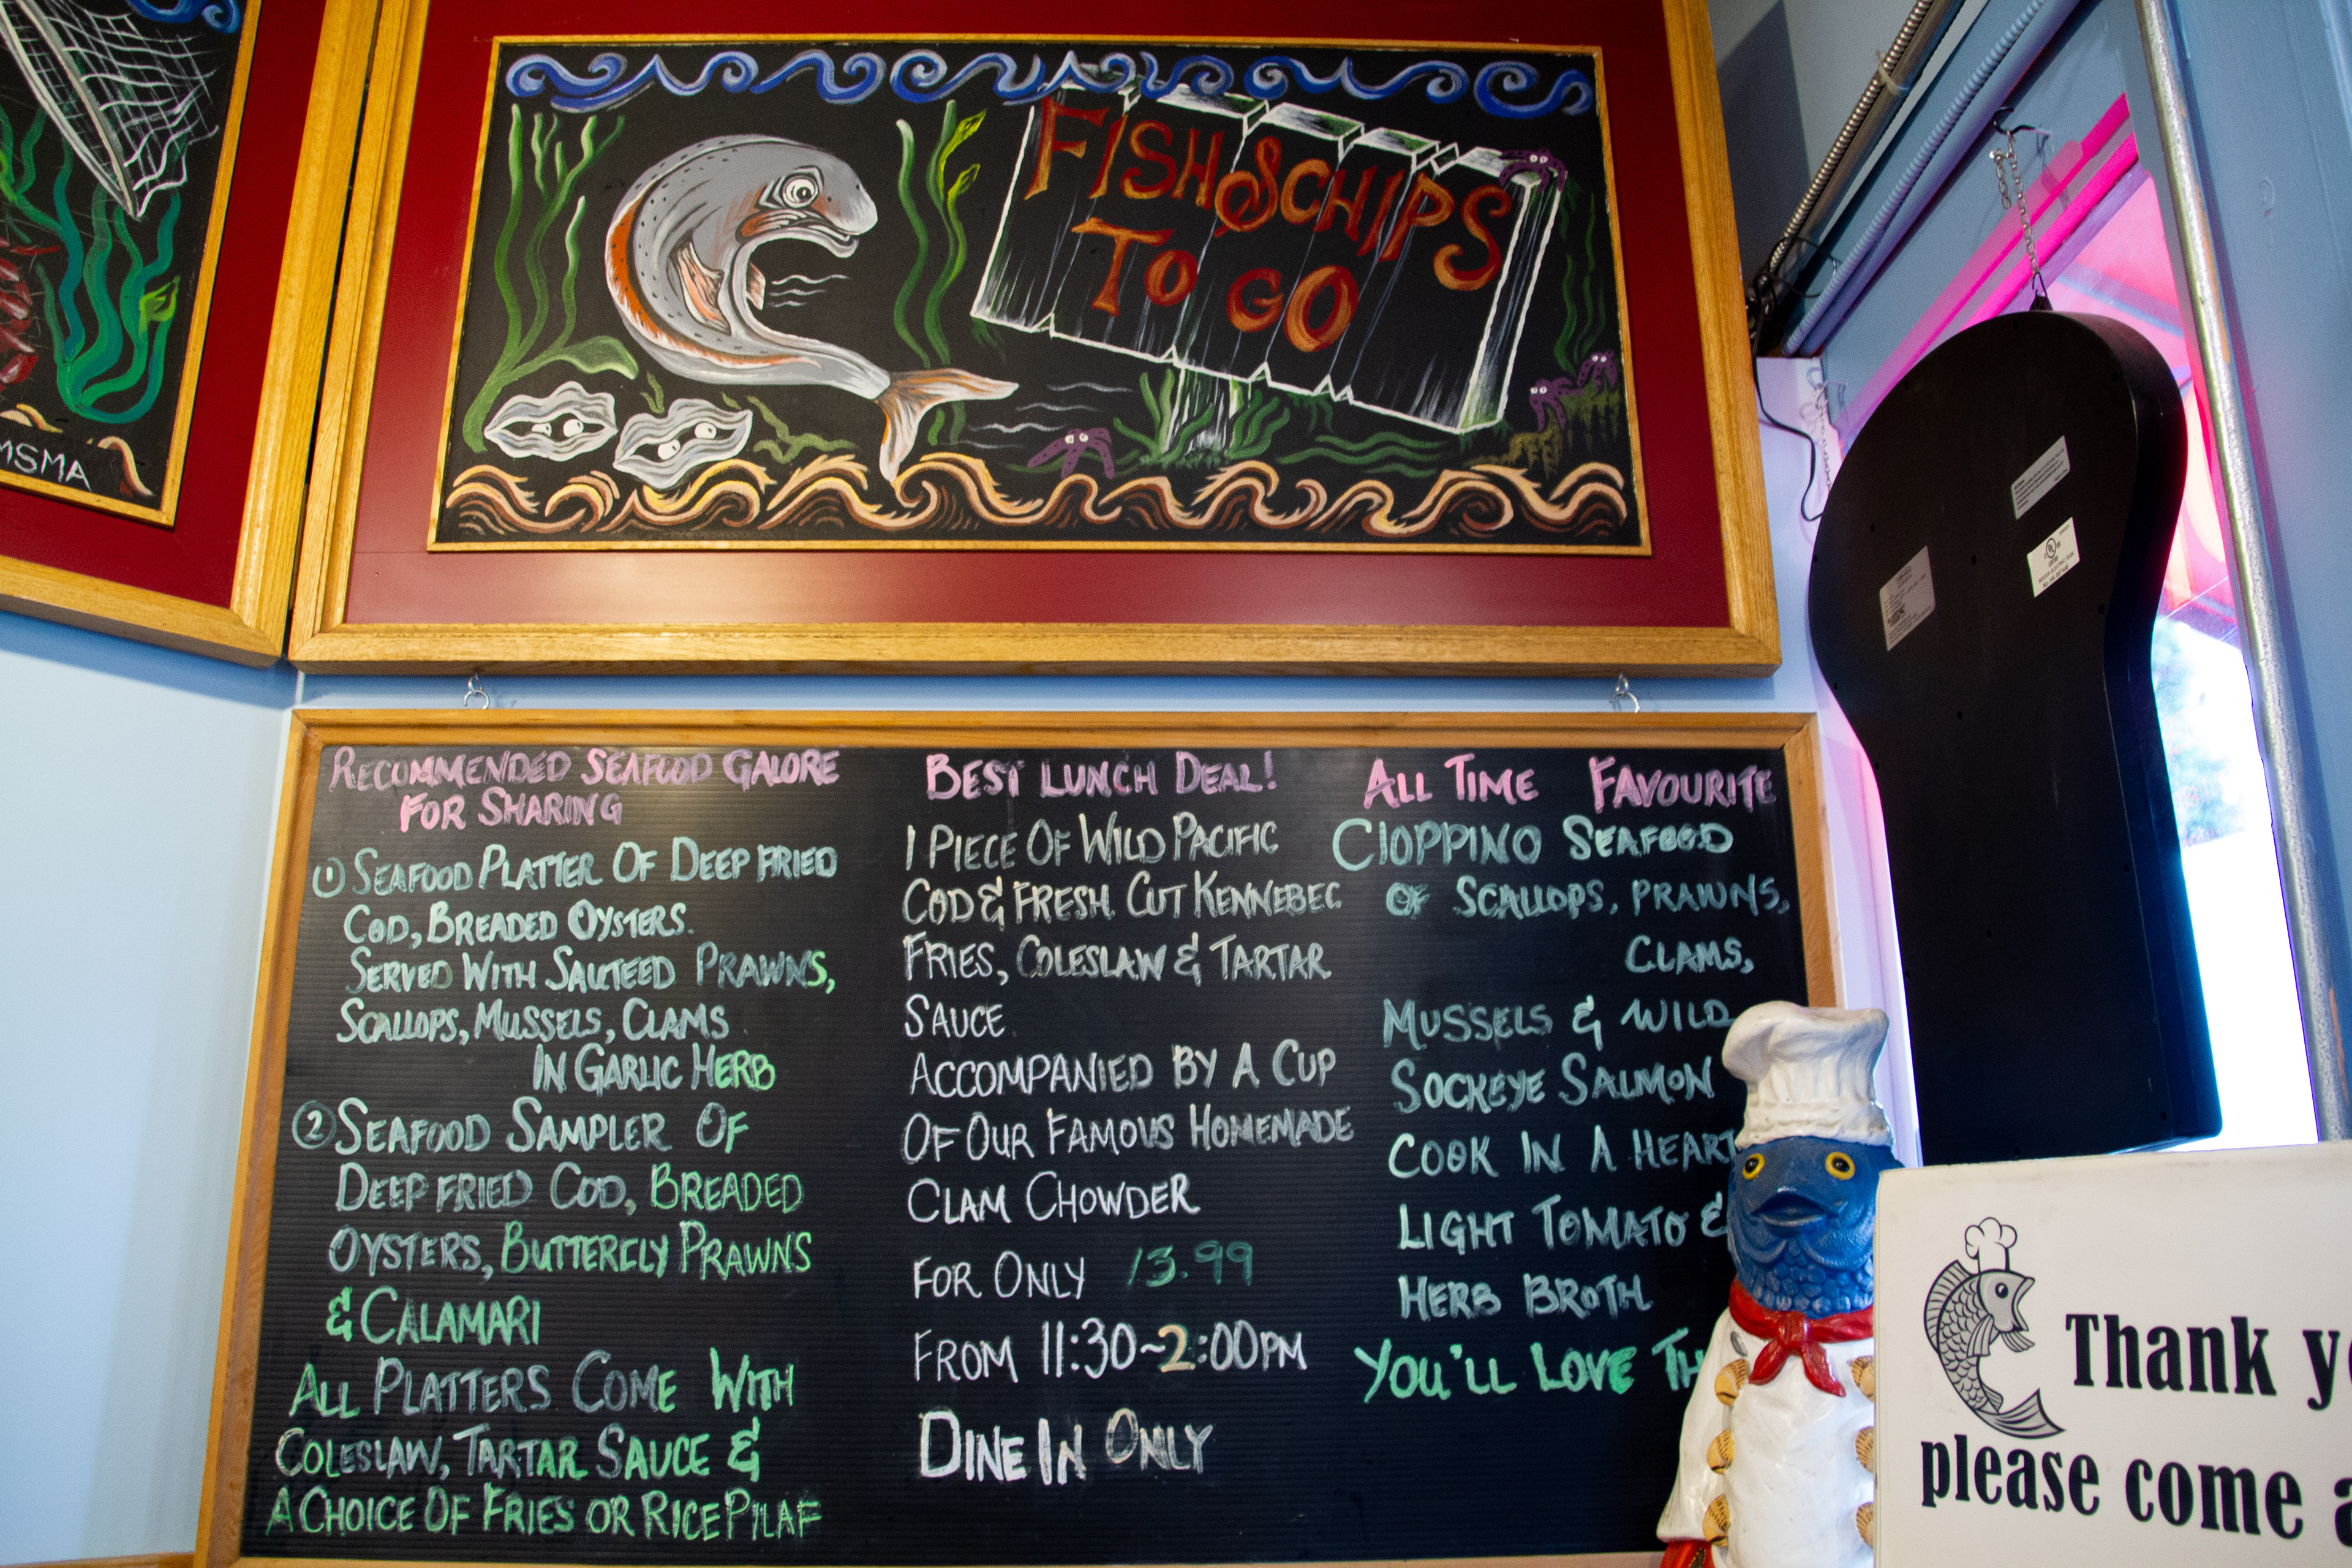 MSMA
FISH & CHIPS
TO GO
RECOMMENDED SEAFOOD GALORE
FOR SHARING
① SEAFOOD PLATTER OF DEEP FRIED
COD, BREADED OYSTERS.
SERVED WITH SAUTEED PRAWNS,
SCALLOPS, MUSSELS, CLAMS
IN GARLIC HERB
② SEAFOOD SAMPLER OF
DEEP FRIED COD, BREADED
OYSTERS, BUTTERFLY PRAWNS
& CALAMARI
ALL PLATTERS COME WITH
COLESLAW, TARTAR SAUCE &
A CHOICE OF FRIES OR RICE PILAF
BEST LUNCH DEAL!
1 PIECE OF WILD PACIFIC
COD & FRESH CUT KENNEBEC
FRIES, COLESLAW & TARTAR
SAUCE
ACCOMPANIED BY A CUP
OF OUR FAMOUS HOMEMADE
CLAM CHOWDER
FOR ONLY 13.99
FROM 11:30~2:00PM
DINE IN ONLY
ALL TIME FAVOURITE
CIOPPINO SEAFOOD
OF SCALLOPS, PRAWNS,
CLAMS,
MUSSELS & WILD
SOCKEYE SALMON
COOK IN A HEART
LIGHT TOMATO &
HERB BROTH
YOU'LL LOVE TH
Thank y
please come a